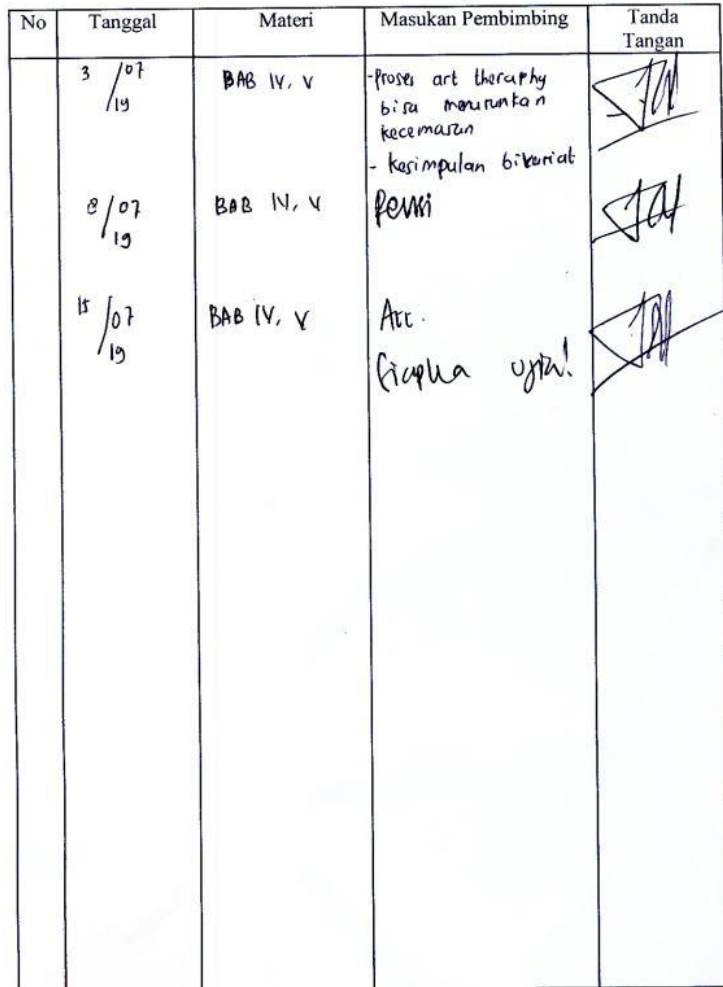 No Tanggal Materi Masukan Pembimbing Tanda Tangan
3/07/19 BAB IV, V -proses art theraphy
bisa menurunkan
kecemasan
- kesimpulan bivariat
8/07/19 BAB IV, V Revisi
15/07/19 BAB IV, V Acc.
Siapka ujia!